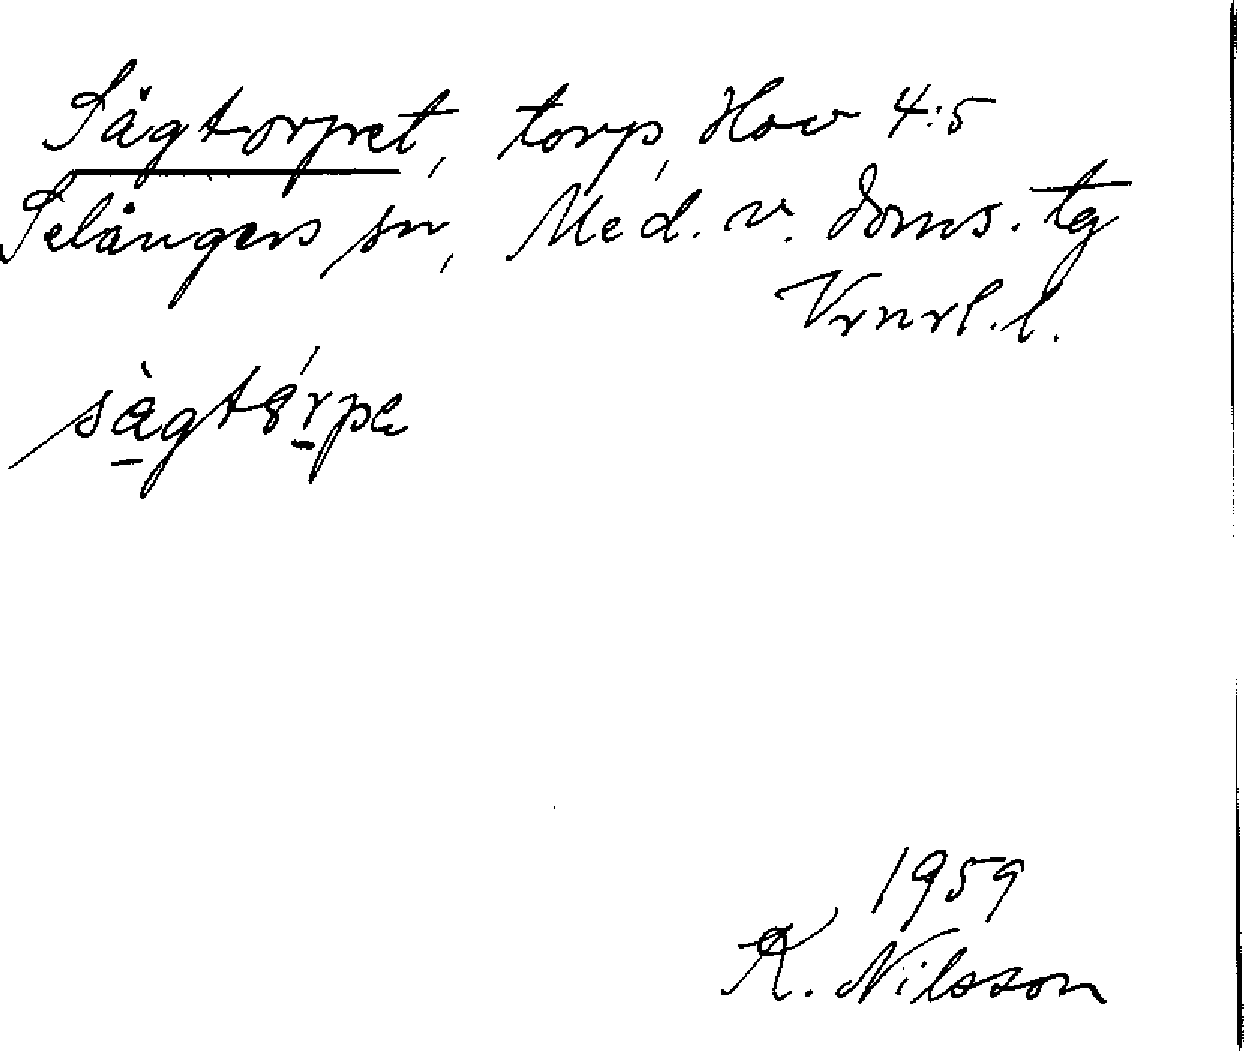 Sågtorpet, torp, Hov 4:5
Selångers sn, Med. v. doms. tg
Vrnrl. l.
sàgtórpe
1959
K. Nilsson